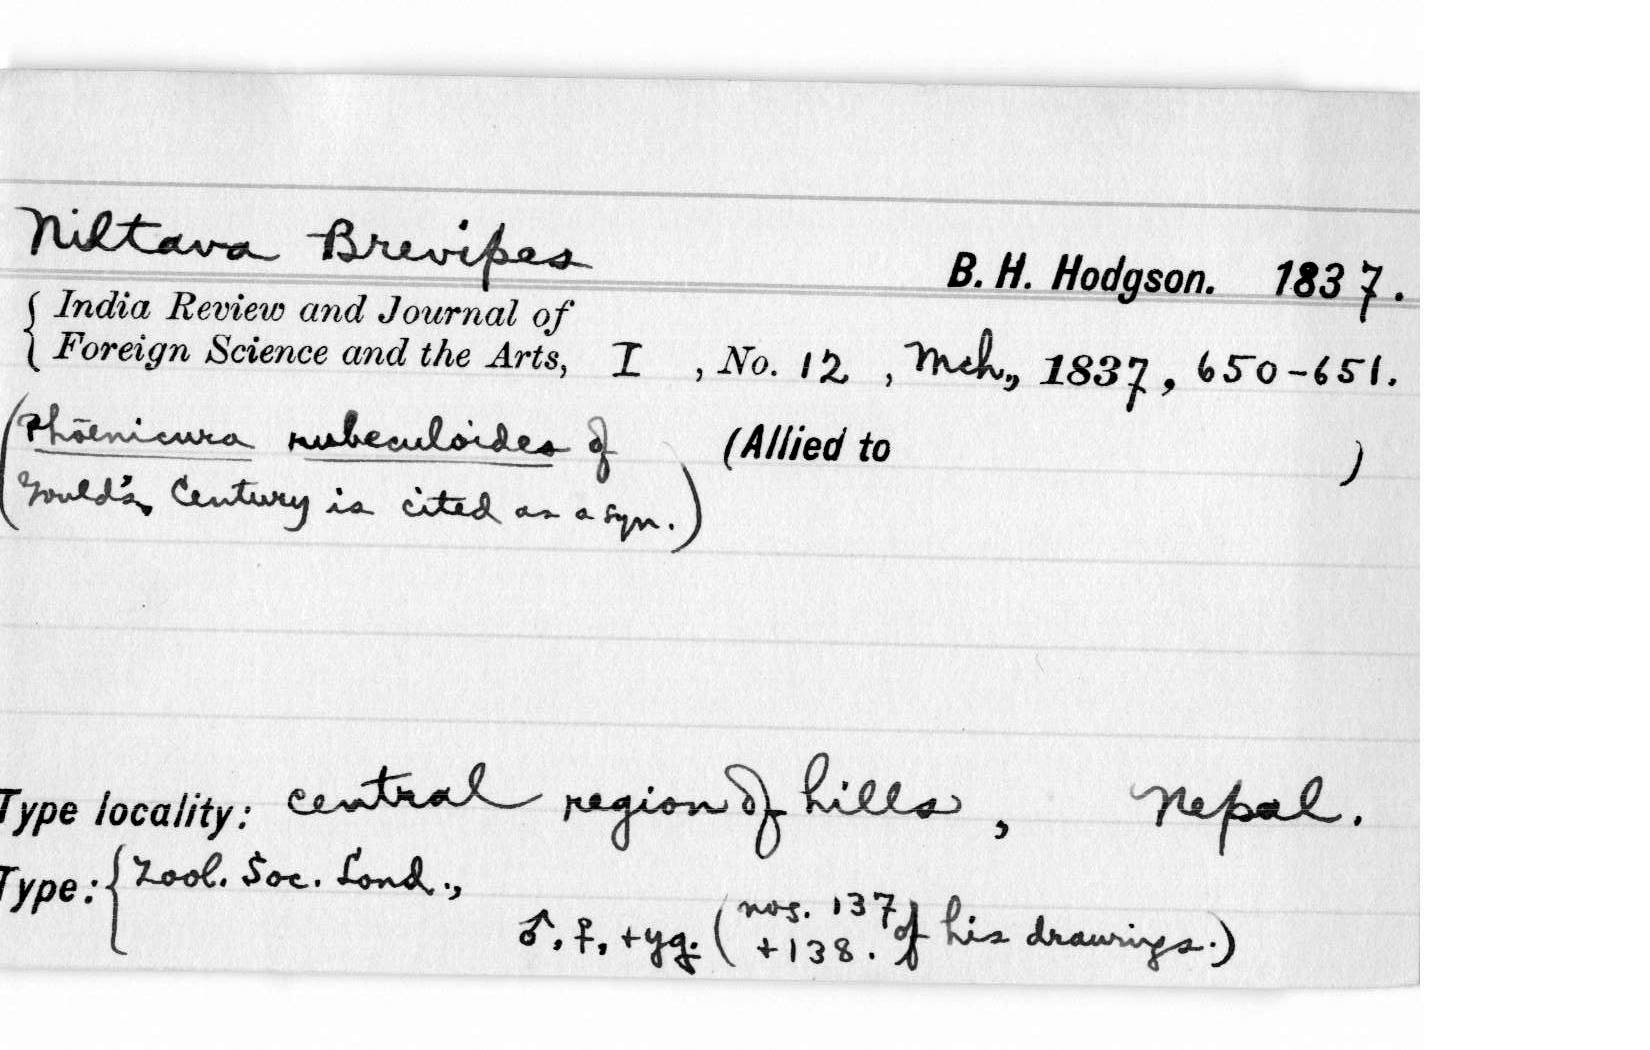 Niltava Brevipes
B. H. Hodgson. 1837.
{ India Review and Journal of
Foreign Science and the Arts, I , No. 12 , Mch., 1837, 650-651.
(Phoenicura rubeculoides of (Allied to )
Gould's Century is cited as a syn.)
Type locality: central region of hills, Nepal.
Type: { Zool. Soc. Lond.,
♂, ♀, + yg. (nos. 137
+ 138. of his drawings.)